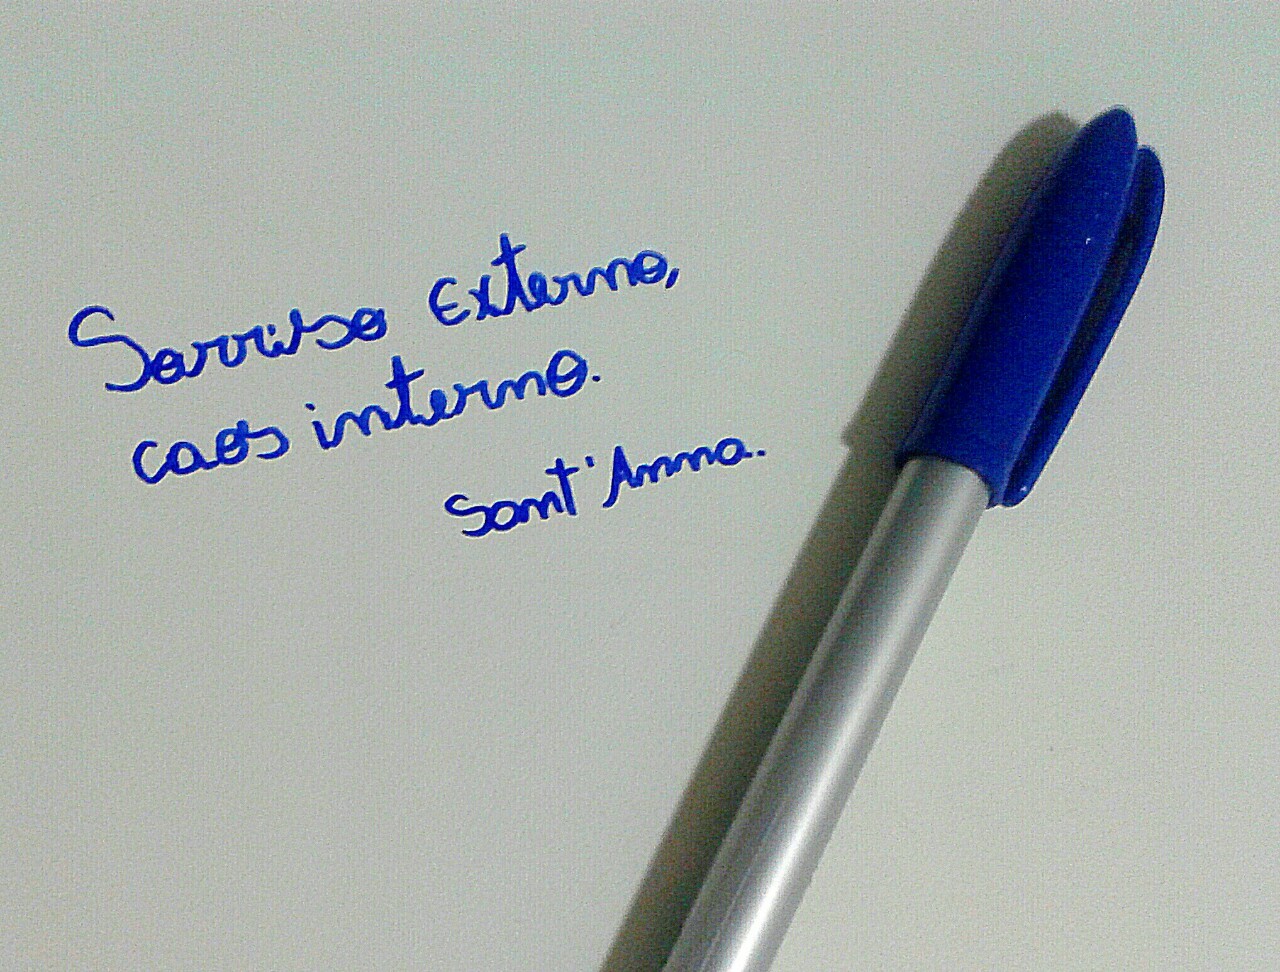 Sorriso Externo,
caos interno.
Sant'Anna.